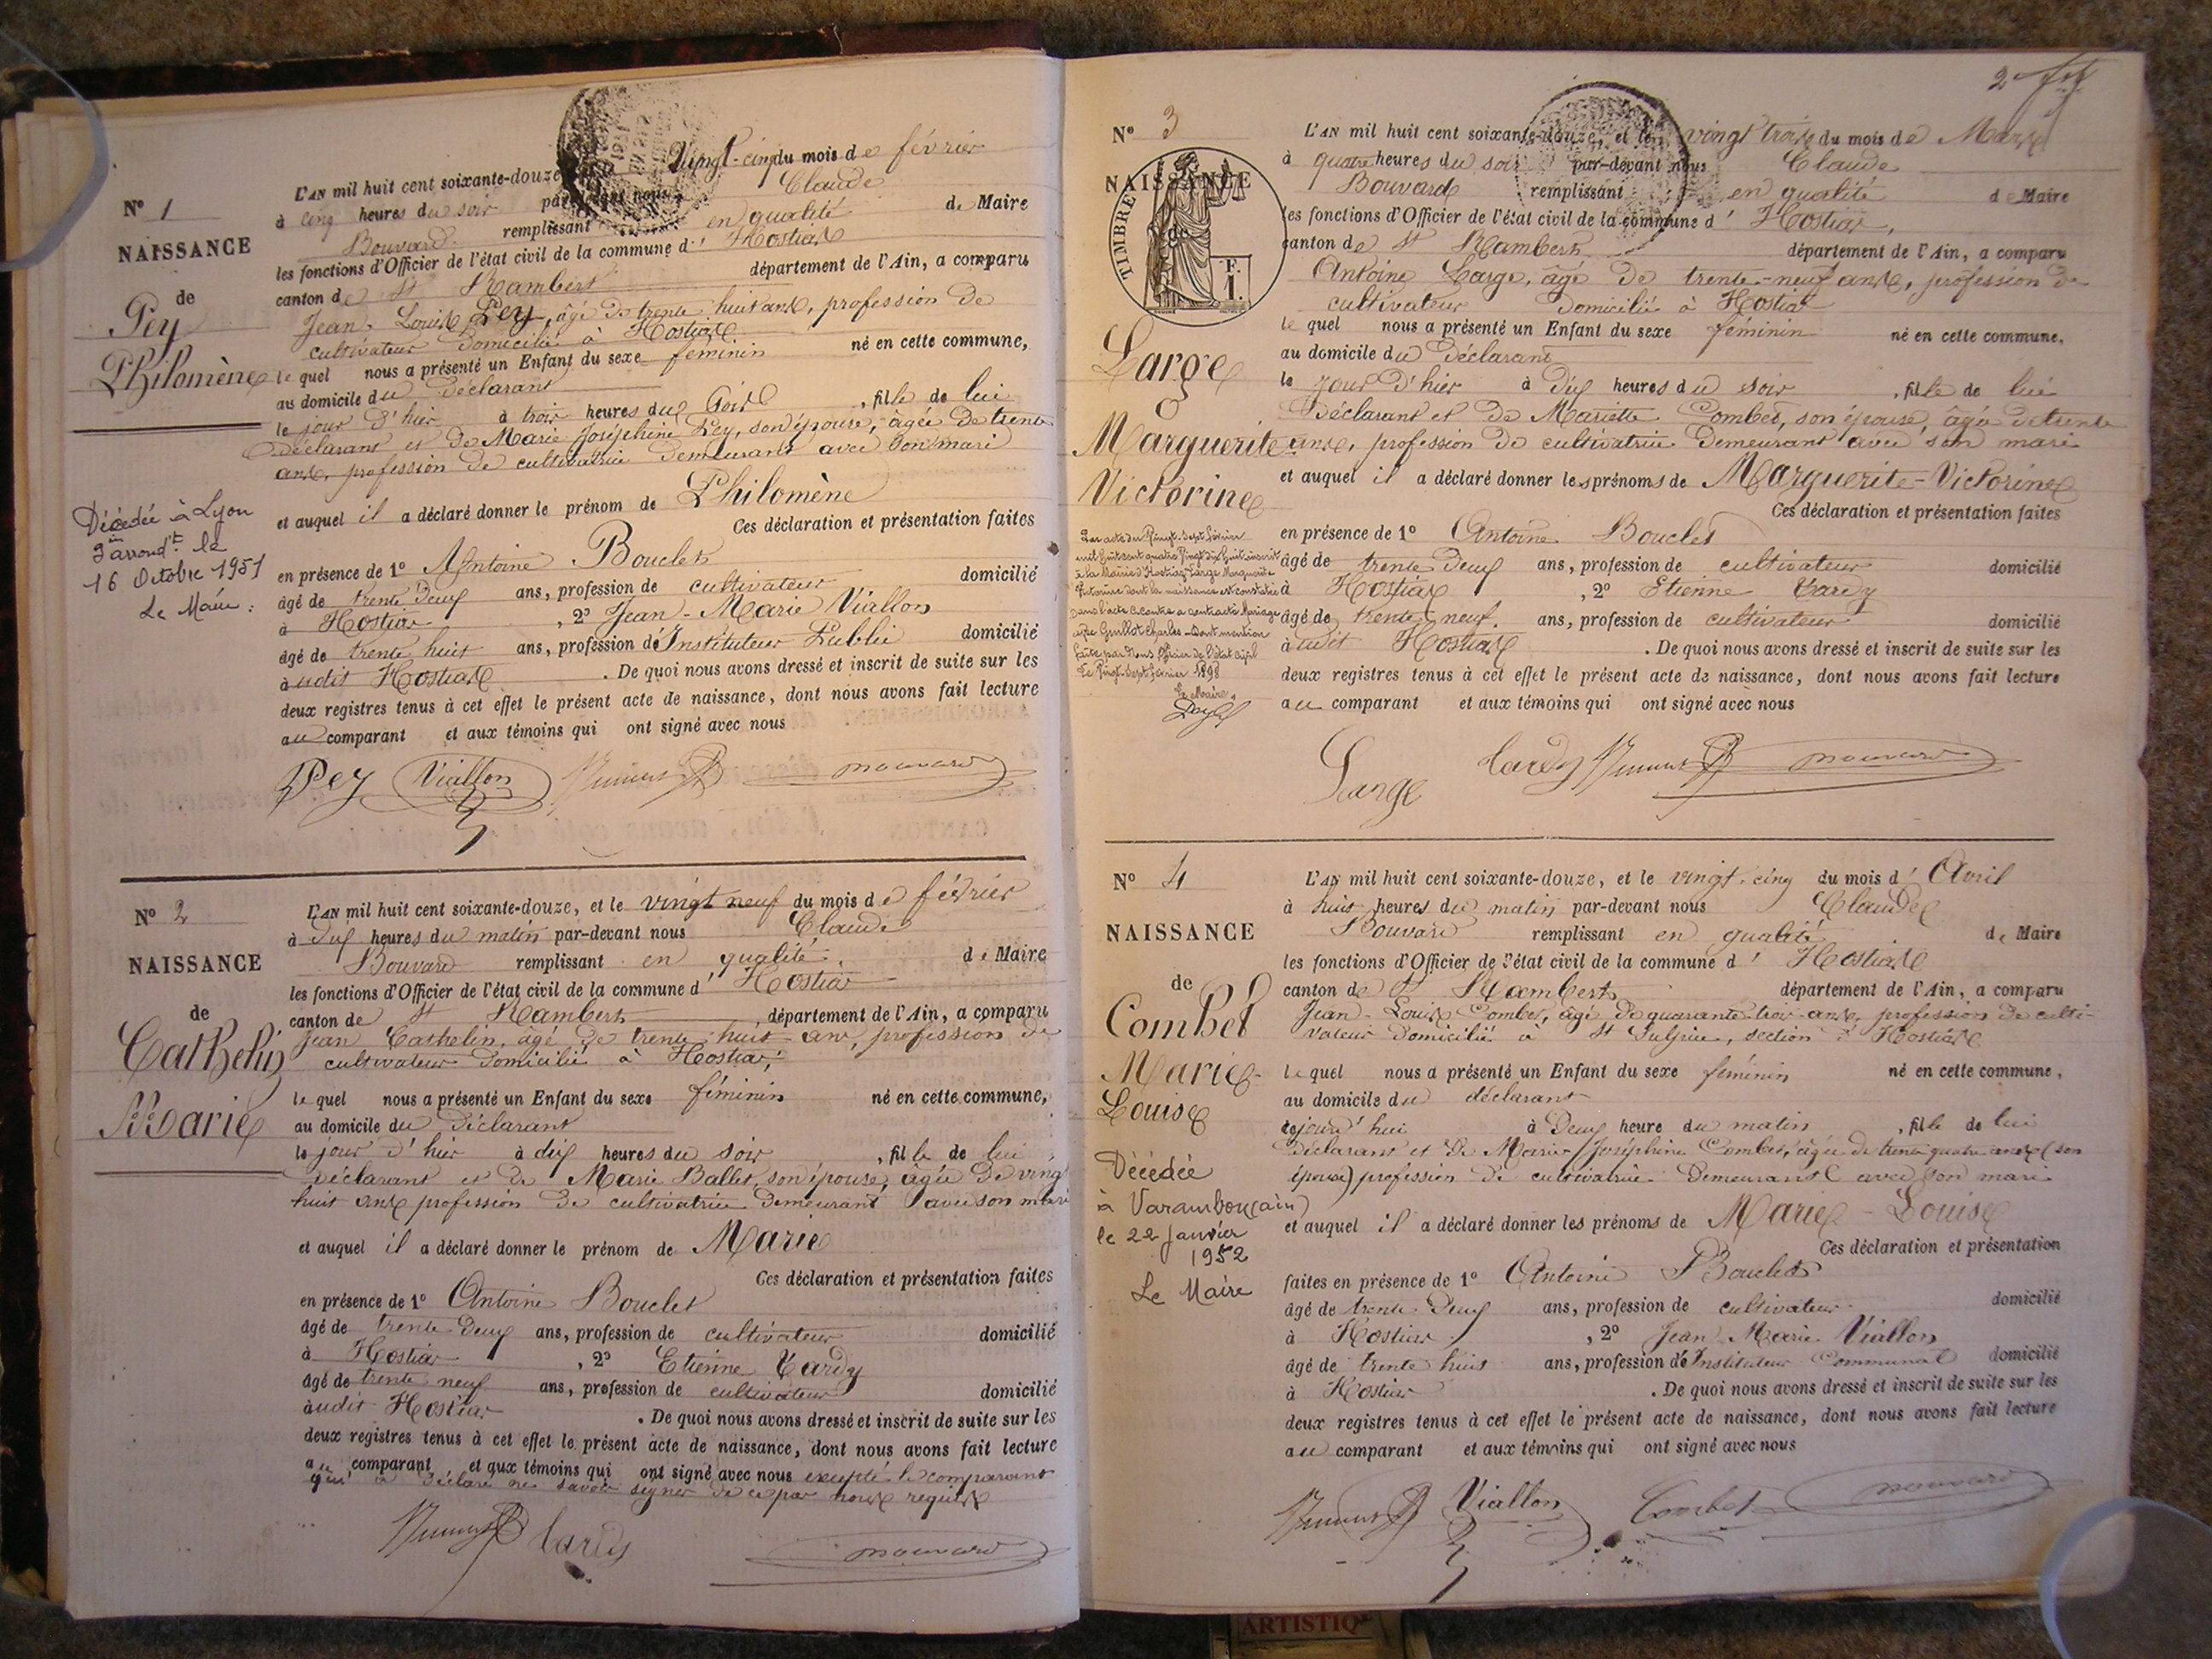 Nº 1
NAISSANCE
de
Pey
Philomène
Décédée à Lyon
3ème arrondt. le
16 Octobre 1951
Le Maire :
L'AN mil huit cent soixante-douze Vingt-cinq du mois de février
à cinq heures du soir par-devant nous Claude
Bouvard remplissant en qualité de Maire
les fonctions d'Officier de l'état civil de la commune d' Hostiax
canton de St Rambert département de l'Ain, a comparu
Jean Louis Pey, âgé de trente huit ans, profession de
cultivateur domicilié à Hostiax
lequel nous a présenté un Enfant du sexe féminin né en cette commune,
au domicile du déclarant
le jour d'hier à trois heures du soir, fille de lui
déclarant et de Marie Joséphine Pey, son épouse, âgée de trente
ans, profession de cultivatrice demeurant avec son mari
et auquel il a déclaré donner le prénom de Philomène
Ces déclaration et présentation faites
en présence de 1º Antoine Bouclet
âgé de trente deux ans, profession de cultivateur domicilié
à Hostiax, 2º Jean-Marie Viallon
âgé de trente huit ans, profession d'Instituteur Public domicilié
audit Hostiax. De quoi nous avons dressé et inscrit de suite sur les
deux registres tenus à cet effet le présent acte de naissance, dont nous avons fait lecture
au comparant et aux témoins qui ont signé avec nous
Pey Viallon
Nº 2
NAISSANCE
de
Cathelin
Marie
L'AN mil huit cent soixante-douze, et le vingt neuf du mois de février
à dix heures du matin par-devant nous Claude
Bouvard remplissant en qualité de Maire
les fonctions d'Officier de l'état civil de la commune d' Hostiax
canton de St Rambert, département de l'Ain, a comparu
Jean Cathelin, âgé de trente huit ans, profession de
cultivateur domicilié à Hostiax,
lequel nous a présenté un Enfant du sexe féminin né en cette commune,
au domicile du déclarant
le jour d'hier à dix heures du soir, fille de lui
déclarant et de Marie Ballet, son épouse, âgée de vingt
huit ans profession de cultivatrice demeurant avec son mari
et auquel il a déclaré donner le prénom de Marie
Ces déclaration et présentation faites
en présence de 1º Antoine Bouclet
âgé de trente deux ans, profession de cultivateur domicilié
à Hostiax, 2º Etienne Tardy
âgé de trente neuf ans, profession de cultivateur domicilié
audit Hostiax. De quoi nous avons dressé et inscrit de suite sur les
deux registres tenus à cet effet le présent acte de naissance, dont nous avons fait lecture
au comparant et aux témoins qui ont signé avec nous excepté le comparant
qui a déclaré ne savoir signer de ce par nous requis
Tardy
2
Nº 3
NAISSANCE
TIMBRE
de
F.
1.
Large
Marguerite
Victorine
Par acte du Vingt-sept février
mil huit cent quatre Vingt dix huit inscrit
à la Mairie d'Hostiaz Large Marguerite
Victorine dont la naissance est constatée
dans l'acte ci-contre a contracté Mariage
avec Guillot Charles - Dont mention
faite par Nous Officier de l'Etat civil
Le Vingt-sept février 1898
Le Maire,
L'AN mil huit cent soixante-douze, et le vingt trois du mois de Mars
à quatre heures du soir par-devant nous Claude
Bouvard remplissant en qualité de Maire
les fonctions d'Officier de l'état civil de la commune d' Hostiax,
canton de St Rambert département de l'Ain, a comparu
Antoine Large, âgé de trente-neuf ans, profession de
cultivateur domicilié à Hostiax
lequel nous a présenté un Enfant du sexe féminin né en cette commune,
au domicile du déclarant
le jour d'hier à dix heures du soir, fille de lui
déclarant et de Mariette Combet, son épouse, âgée de trente
ans, profession de cultivatrice demeurant avec son mari
et auquel il a déclaré donner les prénoms de Marguerite-Victorine
Ces déclaration et présentation faites
en présence de 1º Antoine Bouclet
âgé de trente deux ans, profession de cultivateur domicilié
à Hostiax, 2º Etienne Tardy
âgé de trente neuf. ans, profession de cultivateur domicilié
audit Hostiax. De quoi nous avons dressé et inscrit de suite sur les
deux registres tenus à cet effet le présent acte de naissance, dont nous avons fait lecture
au comparant et aux témoins qui ont signé avec nous
Large Tardy
Nº 4
NAISSANCE
de
Combet
Marie-
Louise
Décédée
à Varambon (ain)
le 22 janvier
1952
Le Maire
L'AN mil huit cent soixante-douze, et le vingt-cinq du mois d' Avril
à huit heures du matin par-devant nous Claude
Bouvard remplissant en qualité de Maire
les fonctions d'Officier de l'état civil de la commune d' Hostiax
canton de St Rambert département de l'Ain, a comparu
Jean-Louis Combet, âgé de quarante-trois ans, profession de culti-
vateur domicilié à St Sulpice, section d'Hostiax
lequel nous a présenté un Enfant du sexe féminin né en cette commune,
au domicile du déclarant
cejourd'hui à deux heure du matin, fille de lui
déclarant et de Marie Joséphine Combet, âgée de trente quatre ans (son
épouse) profession de cultivatrice demeurant avec son mari
et auquel il a déclaré donner les prénoms de Marie-Louise
Ces déclaration et présentation
faites en présence de 1º Antoine Bouclet
âgé de trente deux ans, profession de cultivateur domicilié
à Hostiax, 2º Jean Marie Viallon
âgé de trente huit ans, profession d'Instituteur Communal domicilié
à Hostiax. De quoi nous avons dressé et inscrit de suite sur les
deux registres tenus à cet effet le présent acte de naissance, dont nous avons fait lecture
au comparant et aux témoins qui ont signé avec nous
Viallon Combet
ARTISTIQ